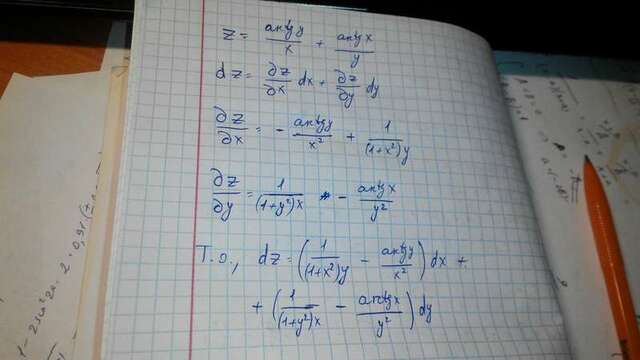 z = arctgy/x + arctgx/y
dz = ∂z/∂x dx + ∂z/∂y dy
∂z/∂x = - arctgy/x² + 1/(1+x²)y
∂z/∂y = 1/(1+y²)x - arctgx/y²
Т.о., dz = (1/(1+x²)y - arctgy/x²) dx +
+ (1/(1+y²)x - arctgx/y²) dy